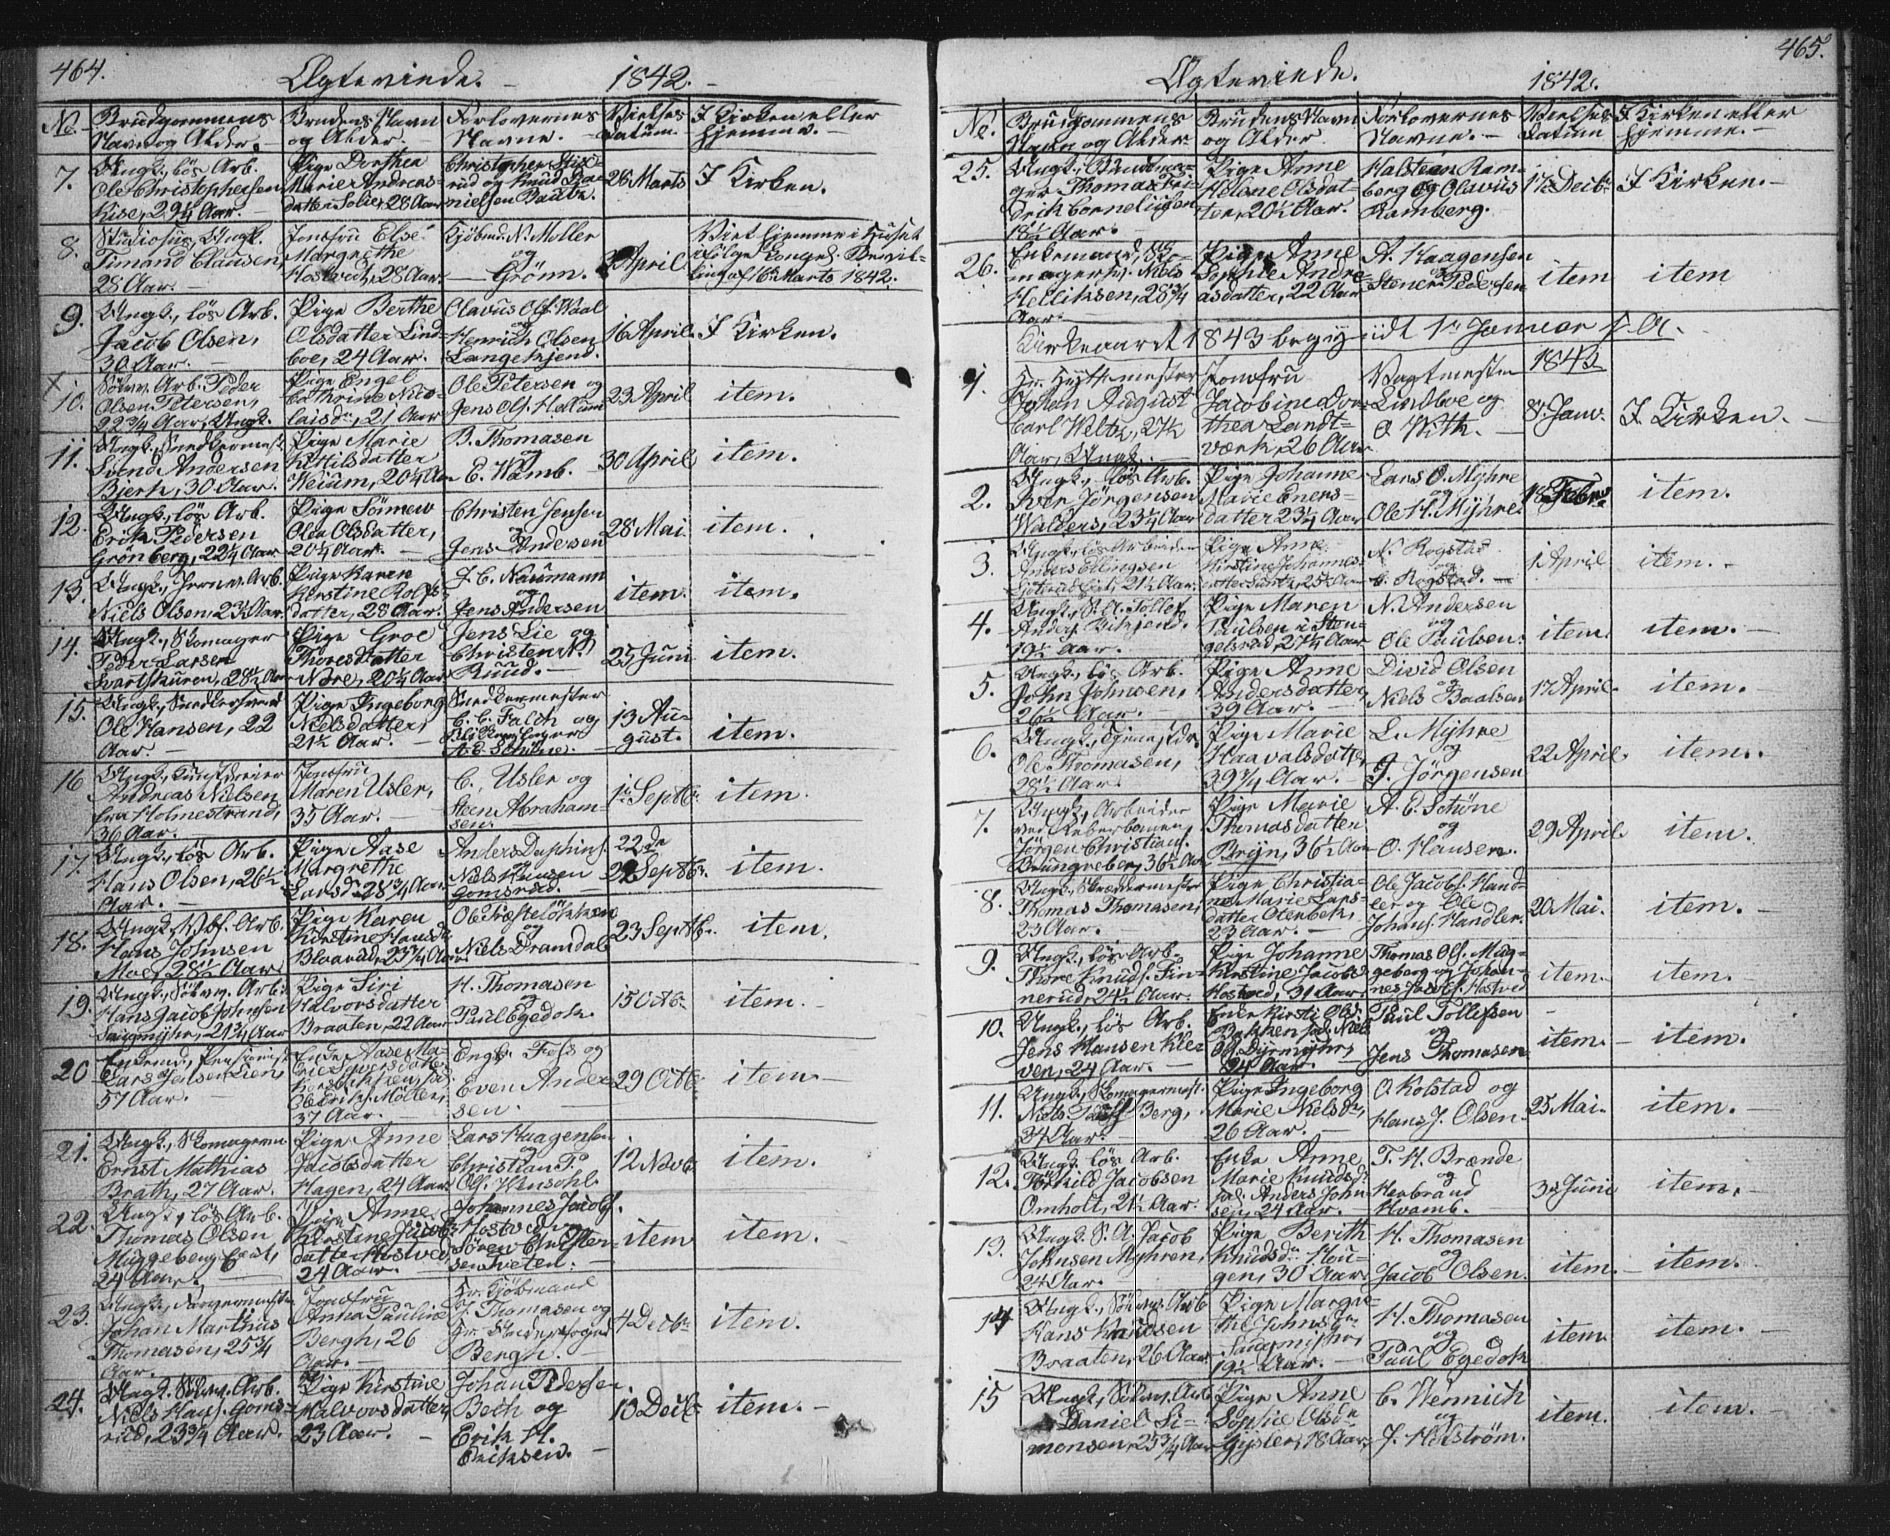 464.
Ægteviede. 1842.
No. Brudgommens Navn og Alder. Brudens Navn og Alder. Forlovernes Navne. Vielses datum. I Kirken eller hjemme.
7. Ungk., løs Arb. Ole Christophersen Kise, 29¼ Aar. Pige Dorthea Marie Andreasdatter Solie, 28 Aar Christopher rud og Knud nielsen 26 Marts I Kirken.
8. Studiosus, Ungk. Timand Claüsen, 28 Aar. Jomfrü Else Margrethe Hostvedt, 28 Aar. Kjöbmd. N. Möller og Grönn. April Viet hjemme i Huset ifölge Kongel. Bevilling af 16 Marts 1842.
9. Ungk., løs Arb. Jacob Olsen, 30 Aar. Pige Berthe Olsdatter Lindboe, 24 Aar. Olavüs Ols. Waal og Henrich Olsen Langekjend. 16 April. I Kirken.
10. Sölvv. Arb. Peder Olsen Petersen, 22¾ Aar, Ungk. Pige Engel Cathrine Nicolaisdr., 21 Aar Ole Petersen og Jens Ols. 23 April item.
11. Ungk., Snedkermest. Svend Andersen Bjerk, 30 Aar. Pige Marie Kittilsdatter Weium, 20¼ Aar B. Thomasen og E. Wamb. 30 April item.
12. Ungk., løs Arb. Erik Pedersen Grönberg, 22¼ Aar Pige Olea Olsdatter, 20¼ Aar. Christen Jensen og Jens Andersen 28 Mai item.
13. Ungk., Jernv. Arb. Niels Olsen, 23½ Aar. Pige Karen Kirstine Rolfsdatter, 28 Aar. J. C. Naümann og Jens Andersen item item.
14. Ungk., Skomager Peder Larsen Svartskuren, 28½ Aar Pige Groe Thoresdatter Nore, 20¼ Aar. Jens Lie og Christen Ruud. 25 Juni item.
15. Ungk., Snedkersvend Ole Hansen, 22 Aar. Pige Ingeborg Nielsdatter, 21½ Aar. Snedkermester C. C. Falch og A. E. Schöne. 13 August. item.
16 Ungk., Andreas Nielsen fra Holmestrand, 36 Aar. Jomfrü Maren Usler, 35 Aar. C. Usler og Steen Abrahamsen. 1 Septbr. item.
17. Ungk., løs Arb. Hans Olsen, 26½ Aar. Pige Aase Margrethe Larsdr. 28¾ Aar. Anders og Niels Hansen Gomsrud. 22de Septbr. item.
18. Ungk., Arb. Hans Johnsen Moe, 28½ Aar Pige Karen Kirstine Hansdr. 23¼ Aar. Ole Træsteløkken og Niels Dramdal 23 Septbr. item.
19. Ungk., Sölvv. Arb. Hans Jacob Johnsen 21¾ Aar Pige Siri Halvorsdatter Braaten, 22 Aar H. Thomasen og Paül Egedok. 15 Octbr. item.
20 Enkemd., Pensionist Lars Jensen Lien, 57 Aar. Enke Aase Marie Möller, 37 Aar. Engbr. Foss og Even Andersen. 29 Octbr. item
21. Ungk., Skomagerm. Ernst Mathias Brath, 27 Aar. Pige Anne Jacobsdatter Hagen, 24 Aar. Lars Haagensen og Christian P. Ols. Wensohl. 12 Novbr. item.
22. Ungk., løs Arb. Thomas Olsen Müggeberg 24 Aar. Pige Anne Kirstine Jacobsdatter Hostved, 24 Aar. Johannes Jacobs. Hostved og Sören Christensen Tveten. item item.
23. Ungk., Garvermester Johan Marthiüs Thomasen, 25¾ Aar. Jomfrü Anna Pauline Bergh, 26 Aar. Hr. Kjöbmand J. Thomasen og Hr. Underfoged Bergh. 4 Decbr. item.
24. Ungk. Sölvv. Arb. Niels Hans. Gomsrud, 23¾ Aar. Pige Kirstine Halvorsdatter, 23 Aar. Johan Pedersen Bech og Erik H. Eriksen. 10 Decbr. item.
465.
Ægteviede. 1842.
No. Brudgommens Navn og Alder. Brudens Navn og Alder Forlovernes Navne. Vielses datum I Kirken eller hjemme.
25. Ungk., Thomas Fridrik Corneliüsen 18½ Aar. Pige Anne Helene Olsdatter, 20½ Aar. Halsteen Ramberg og Olaviüs Ramberg. 17 Decbr. I Kirken.
26. Enkemand, Skomagersv. Niels Helliksen, 28¾ Aar. Pige Anne Sophie Andreasdatter, 22 Aar A. Haagensen og Stener Pedersen item item
Kirkeaaret 1843 begyndt 1 Januar s. A.
1843
1. Hr. Hyttemester Johan August Carl Weltz, 27½ Aar, Ungk. Jomfrü Jacobine Dorthea Landtværk, 26 Aar Vagtmester Lindboe og O With. 8 Janv. I Kirken.
2. Ungk., løs Arb. Iver Jörgensen Walders, 23¼ Aar Pige Johanne Marie Enersdatter 23¼ Aar Lars O. Myhre og Ole H. Myhre. 18 Febr. item.
3. Ungk., løs Arbeider Anders Erlingsen 21½ Aar. Pige Anne Kirstine Johannesdatter 25 Aar N. Rogstad og C. Rogstad. 1 April item.
4. Ungk., S. A. Tollef Anders. Bikjend, 19½ Aar. Pige Maren Paülsen i Stengelsrud, 21¾ Aar N. Andersen og Ole Paülsen. item. item.
5. Ungk., løs Arb. John Johnsen, 26½ Aar. Pige Anne Andersdatter, 39 Aar. Divid Olsen og Niels Paalsen 17 April. item.
6. Ungk., Ole Thomasen, 28½ Aar. Pige Marie Haavalsdatter, 39¾ Aar. L. Myhre og G. Jörgensen 22 April. item.
7. Ungk., Arbeider Jörgen Christians. Brüngreber, 36½ Aar Pige Marie Thomasdatter Bryn, 36½ Aar A. E. Schöne og O. Hansen. 29 April. item.
8. Ungk., Skræddermester Thomas Thomasen, 23 Aar. Pige Christiane Marie Larsdatter Olenbek, 23 Aar. Ole Jacobs. Handler og Ole Johans. Handler. 20 Mai. item.
9. Ungk., løs Arb. Thore Knuds. Finnerud, 24½ Aar. Pige Johanne Kirstine Jacobsd. Hostved, 31 Aar. Thomas Ols. Müggeberg og Johannes Jacobs. Hostved item. item.
10. Ungk., løs Arb. Jens Hansen Kleven, 24 Aar. Enke Kirsti Olsd. Bakken 24 Aar. Paül Tollefsen og Jens Thomasen item. item.
11. Ungk., Skomagermest. Niels Berg, 34 Aar. Pige Ingeborg Marie Nielsdr., 26 Aar. O Kolstad og Hans J. Olsen. 25 Mai. item.
12. Ungk. løs Arb. Torkild Jacobsen Omholt, 21½ Aar. Enke Anne Marie Knudsd. Anders Johnsen, 24 Aar. T. H. Brænde og Herbrand Kvamb. 3 Juni item.
13. Ungk. S. A. Jacob Johnsen Myhren, 24 Aar. Pige Berith Knudsdr. Hougen, 30 Aar H. Thomasen og Jacob Olsen. item. item.
14 Ungk., Sölvv. Arb Hans Knudsen Braaten, 26 Aar. Pige Margrethe Johnsdr. 19½ Aar. H. Thomasen og Paul Egedok item. item.
15 Ungk., Sölvv. Arb. Daniel Simonsen, 25¾ Aar Pige Anne Sophie Olsdr. Gysler, 18 Aar. C. Wennich og J. Holström. item. item.